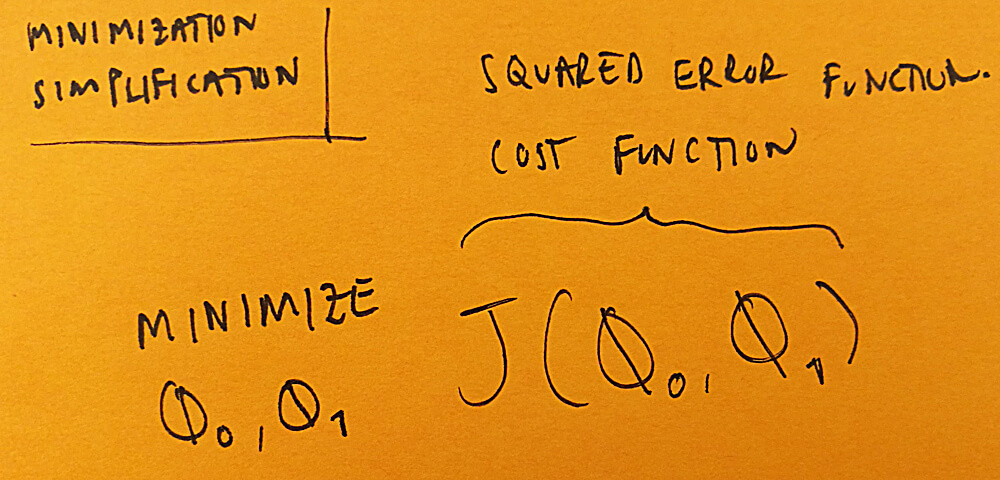 MINIMIZATION
SIMPLIFICATION
SQUARED ERROR FUNCTION.
COST FUNCTION
MINIMIZE J(Φ₀, Φ₁)
Φ₀, Φ₁